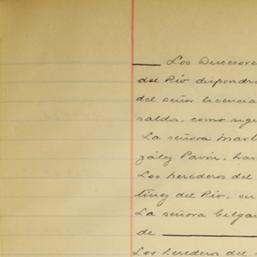 Los Succesore
del Río dispondrá
del señor licencia
saldo, como sigu
La señora Mart
zález Pavón, har
Los herederos del
tínez del Río, su
La señora
de
Los herederos del